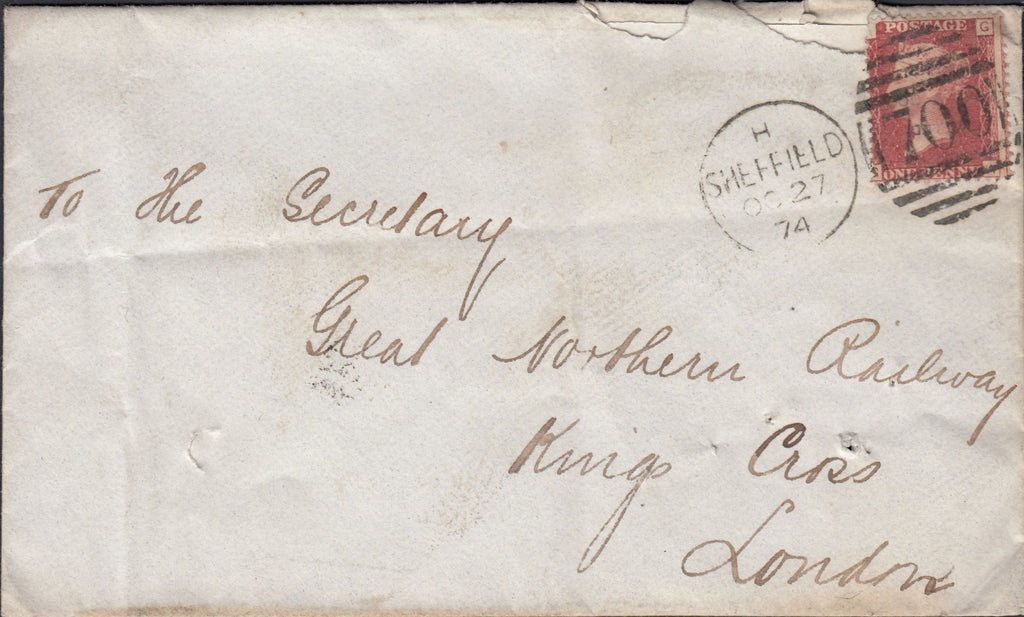 POSTAGE G
700
ONE PENNY
H
SHEFFIELD
OC 27
74
To The Secretary
Great Northern Railway
Kings Cross
London